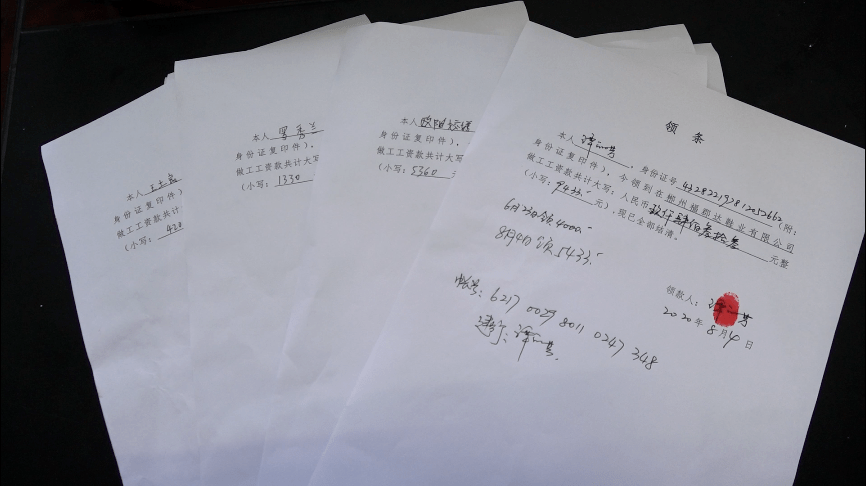 本人王
身份证复印件）
做工工资款共计
（小写：430
本人罗秀兰
身份证复印件），
做工工资款共计大写
（小写：1330
本人欧阳
身份证复印件），
做工工资款共计大写
（小写：5360 元
领 条
本人谭一芳，身份证号（附：
身份证复印件），今领到在郴州福郎达鞋业有限公司
做工工资款共计大写：人民币玖仟肆佰叁拾叁元整
（小写：9433 元），现已全部结清。
6月23日领4000.
8月4日领5433.
领款人：谭一芳
2020年8月4日
帐号：6217 0029 8011 0247 348
建行：谭一芳